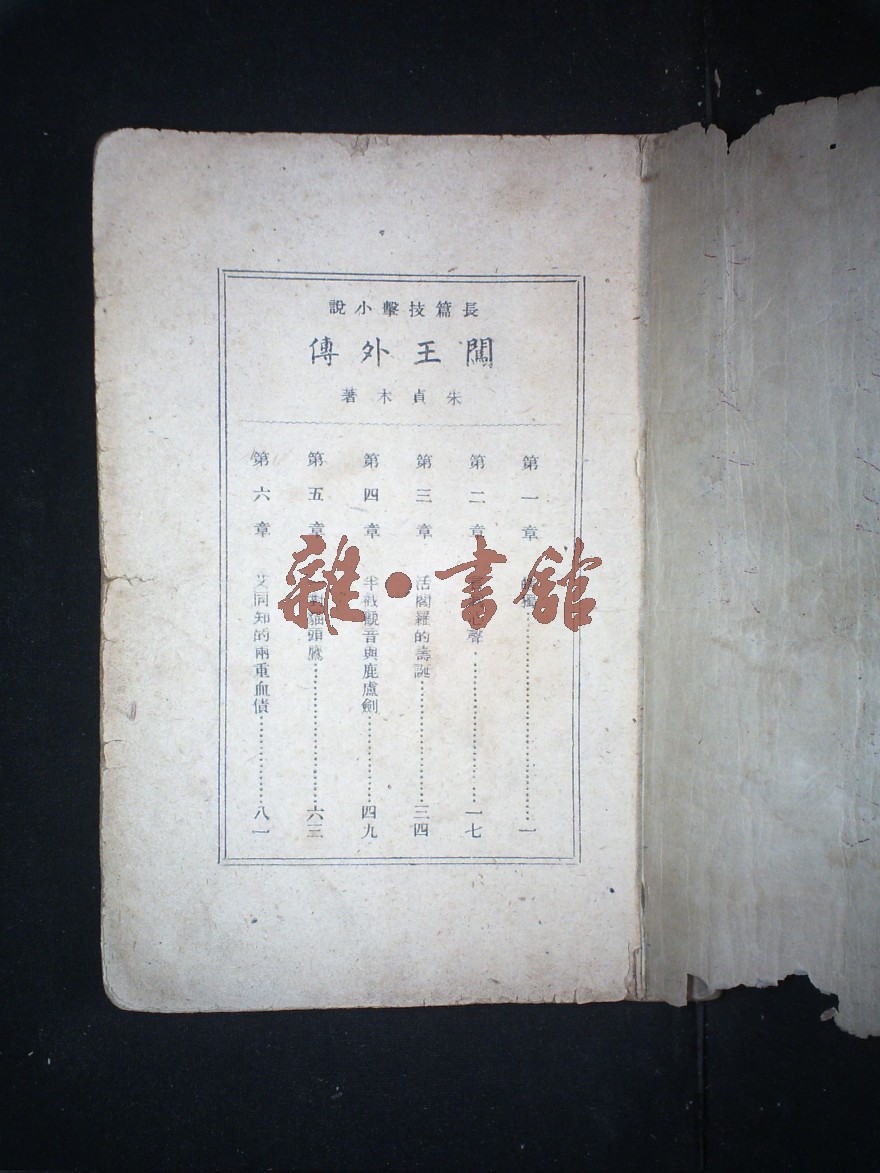 長篇技擊小說
闖王外傳
朱貞木著
第一章 獵……一
第二章 聲……一七
第三章 活閻羅的壽誕……三四
第四章 半截觀音與鹿盧劍……四九
第五章 貓頭鷹……六三
第六章 艾同知的兩重血債……八一
雜·書館